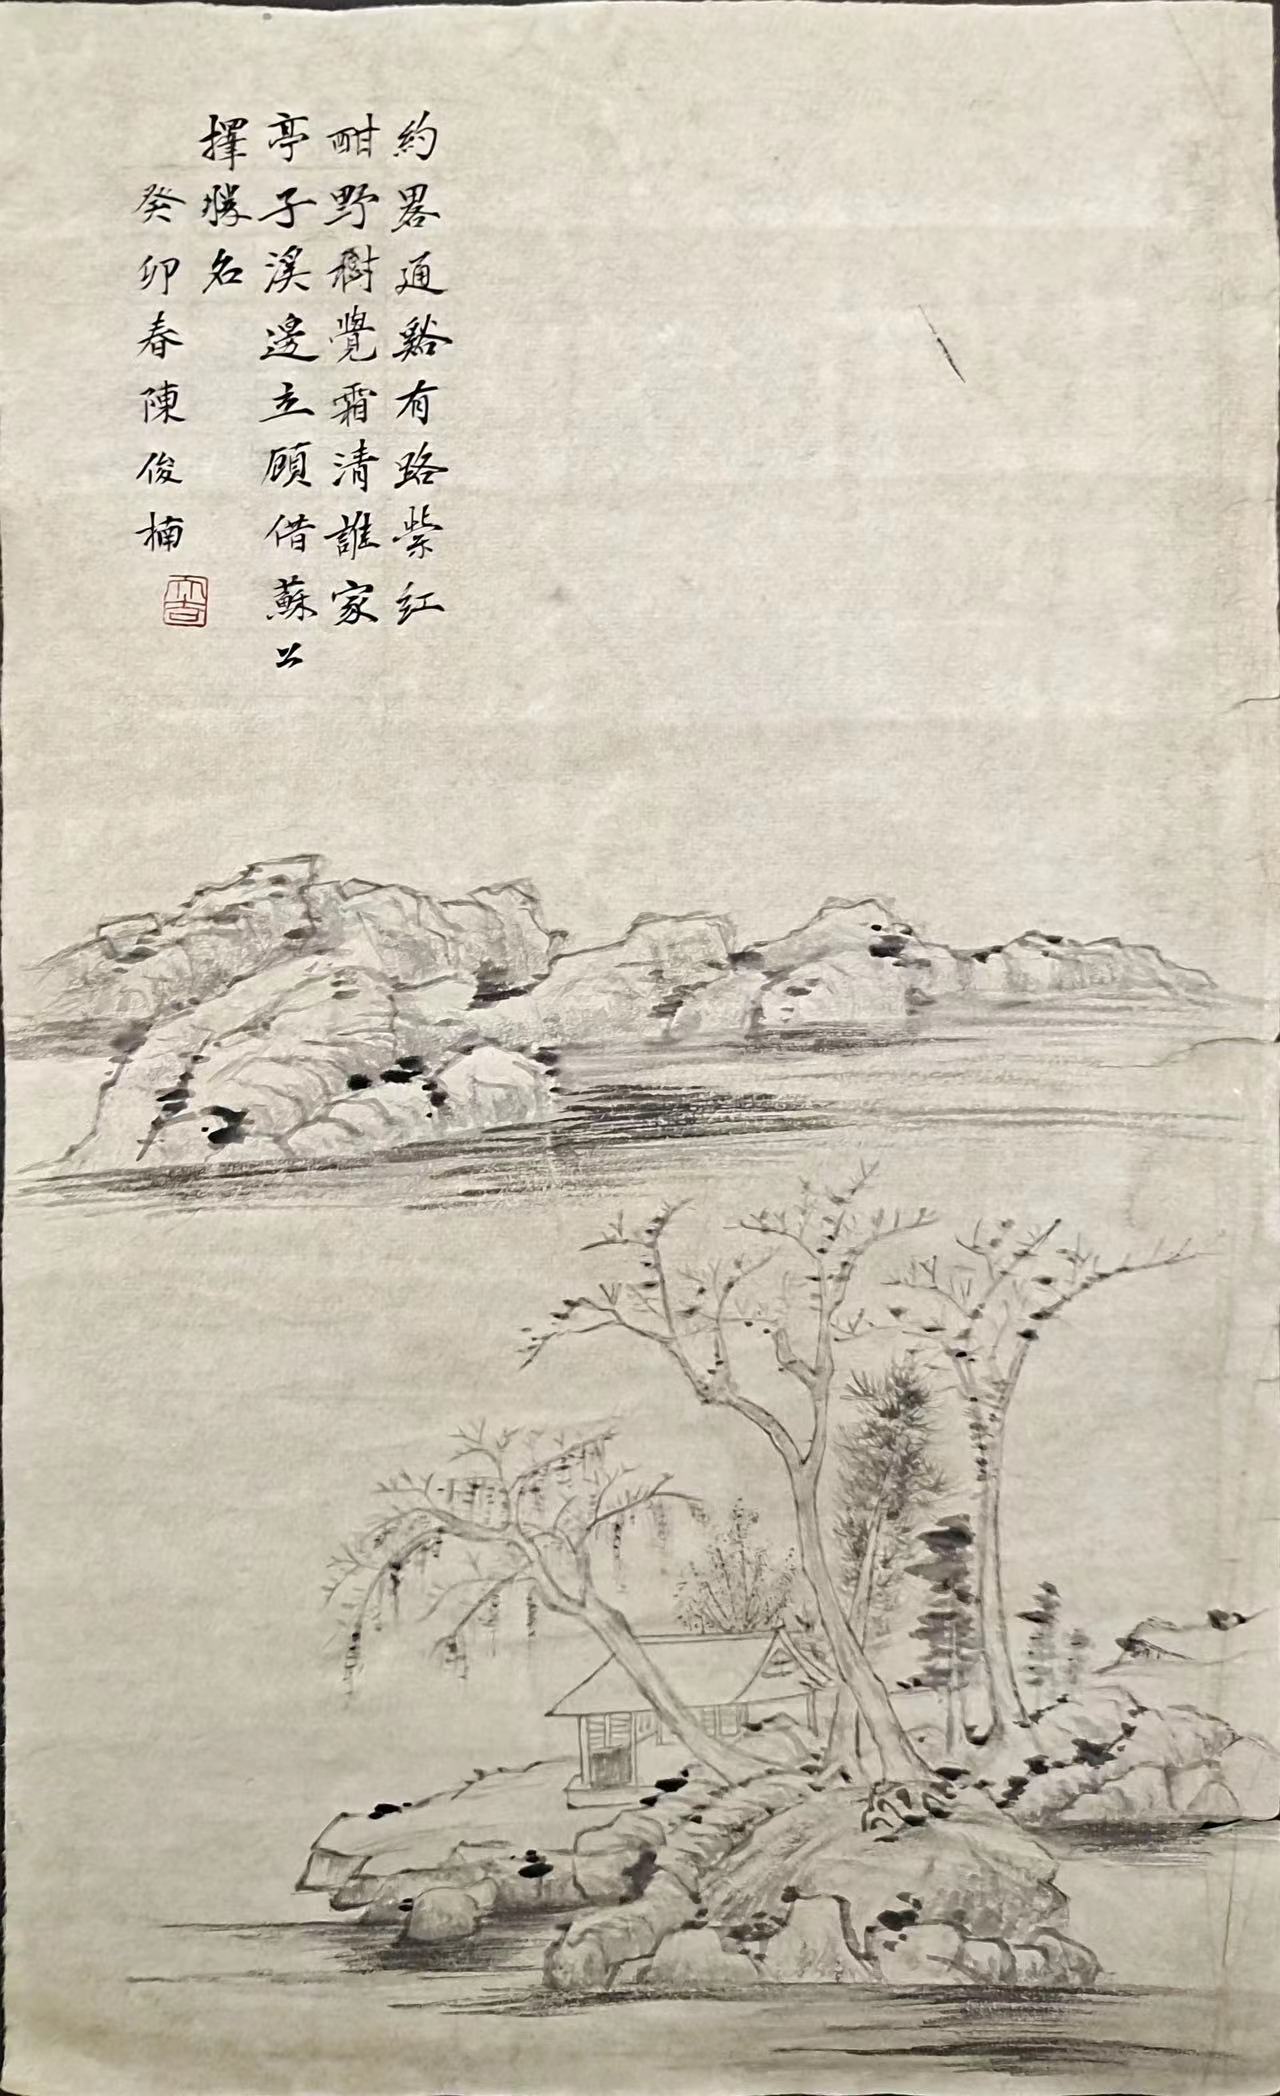 約畧通谿有路紫紅
酣野樹覺霜清誰家
亭子溪邊立願借蘇公
擇勝名
癸卯春陳俊楠
大吉